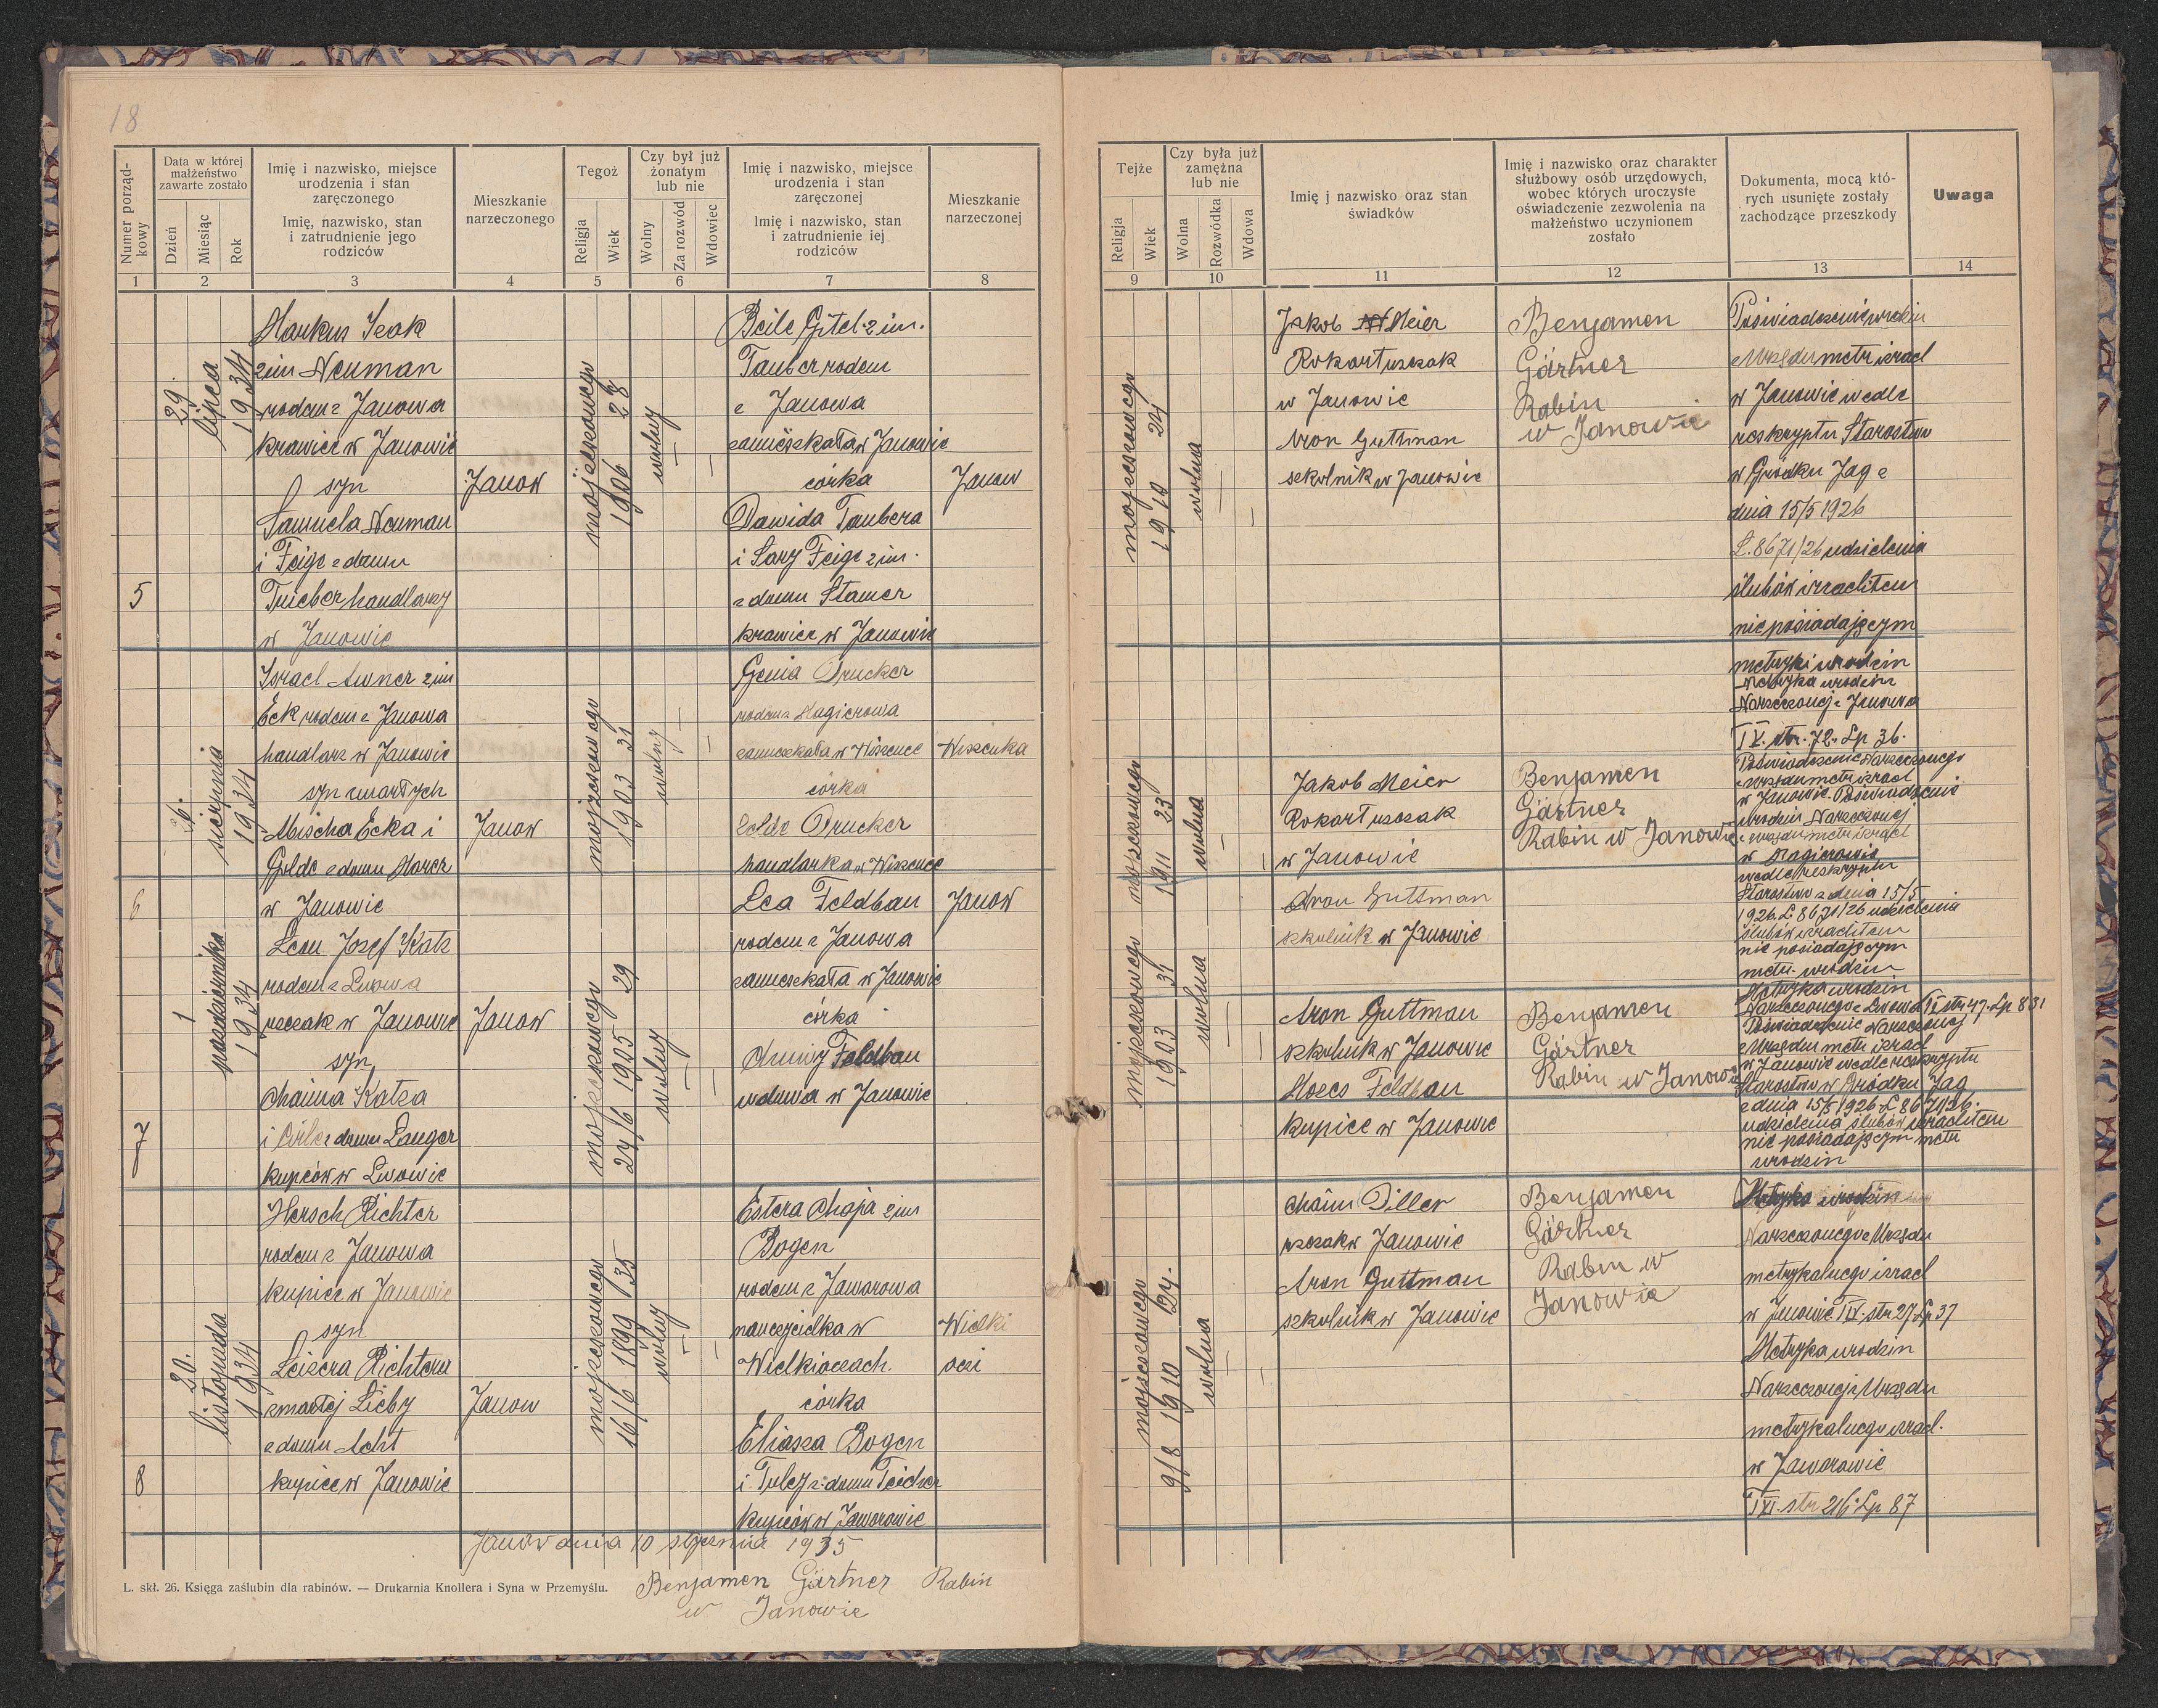 18
Numer porządkowy
Data w której małżeństwo zawarte zostało
Dzień
Miesiąc
Rok
Imię i nazwisko, miejsce urodzenia i stan zaręczonego
Imię, nazwisko, stan i zatrudnienie jego rodziców
Mieszkanie narzeczonego
Tegoż
Religja
Wiek
Czy był już żonatym lub nie
Wolny
Za rozwód
Wdowiec
Imię i nazwisko, miejsce urodzenia i stan zaręczonej
Imię i nazwisko, stan i zatrudnienie iej rodziców
Mieszkanie narzeczonej
1 2 3 4 5 6 7 8
5
29.
lipca
1934
Markus Izak
2im Neuman
rodem z Janowa
krawiec w Janowie
syn
Samuela Neuman
i Feige z domu
Trieber handlarzy
w Janowie
Janow
mojżeszowego
1906 28
wolny
Beile Gitel 2 im.
Tauber rodem
z Janowa
zamieszkała w Janowie
córka
Dawida Taubera
i Sary Feige 2 im.
z domu Stamer
krawiec w Janowie
Janow
6
26.
sierpnia
1934
Israel Awner 2 im
Eck rodem z Janowa
handlarz w Janowie
syn zmarłych
Mischa Ecka i
Golde z domu Harer
w Janowie
Janow
mojżeszowego
1903 31
wolny
Genia Drucker
rodem z Magierowa
zamieszkała w Wiszence
córka
Drucker
handlarka w Wiszence
Wiszenka
7
1
października
1934
Leon Josef Katz
rodem z Lwowa
rzezak w Janowie
syn
Chaima Katza
i Cirle z domu Langer
kupców w Lwowie
Janow
mojżeszowego
24/6 1905 29
wolny
Lea Feldbau
rodem z Janowa
zamieszkała w Janowie
córka
Chuwy Feldbau
wdowa w Janowie
Janow
8
20.
listopada
1934
Hersch Richter
rodem z Janowa
kupiec w Janowie
syn
Leizera Richtera
zmarłej Lieby
z domu Acht
kupiec w Janowie
Janow
mojżeszowego
16/6 1899 35
wolny
Estera Chaja 2 im
Bogen
rodem z Jaworowa
nauczycielka w
Wielkioczach
córka
Eliasza Bogen
i Tulcy z domu Teicher
kupców w Jaworowie
Wielki
oczi
Janów dnia 10 stycznia 1935
Benjamen Gärtner Rabin
w Janowie
L. skł. 26. Księga zaślubin dla rabinów. — Drukarnia Knollera i Syna w Przemyślu.
Tejże
Religja
Wiek
Czy była już zamężna lub nie
Wolna
Rozwódka
Wdowa
Imię j nazwisko oraz stan świadków
Imię i nazwisko oraz charakter służbowy osób urzędowych, wobec których uroczyste oświadczenie zezwolenia na małżeństwo uczynionem zostało
Dokumenta, mocą których usunięte zostały zachodzące przeszkody
Uwaga
9 10 11 12 13 14
mojżeszowego
1910 24
wolna
Jakob Meier
Rokart rzezak
w Janowie
Aron Guttman
szkolnik w Janowie
Benjamen
Gärtner
Rabin
w Janowie
Poświadczenie urodzin
z Urzędu metr izrael
w Janowie wedle
reskryptu Starostwa
w Gródku Jag z
dnia 15/5 1926
L. 8671/26 udzielenia
ślubów izraelitom
nie posiadającym
metryki urodzin
Metryka urodzin
Narzeczonej z Janowa
T V. str. 72. Lp 36.
mojżeszowego
1911 23
wolna
Jakob Meier
Rokart rzezak
w Janowie
Aron Guttman
szkolnik w Janowie
Benjamen
Gärtner
Rabin w Janowie
Poświadczenie Narzeczonego
z Urzędu metr izrael
w Janowie. Poświadczenie
urodzin Narzeczonej
z Urzędu metr izrael
w Magierowie
wedle reskryptu
Starostwa z dnia 15/5
1926 L 8671/26 udzielenia
ślubów izraelitom
nie posiadającym
metr. urodzin
mojżeszowego
1903 31
wolna
Aron Guttman
szkolnik w Janowie
Mozes Feldbau
kupiec w Janowie
Benjamen
Gärtner
Rabin w Janowie
Metryka urodzin
Narzeczonego z Lwowa str 47. Lp 831
Poświadczenie Narzeczonej
z Urzędu metr izrael
w Janowie wedle reskryptu
Starostwa w Gródku Jag
z dnia 15/5 1926 L 8671/26.
udzielenia ślubów izraelitom
nie posiadającym metr
urodzin
mojżeszowego
9/8 1910 24.
wolna
Chaim Diller
rzezak w Janowie
Aron Guttman
szkolnik w Janowie
Benjamen
Gärtner
Rabin w
Janowie
Metryka urodzin
Narzeczonego z Urzędu
metrykalnego izrael
w Janowie T IV. str 27 Lp 37
Metryka urodzin
Narzeczonej z Urzędu
metrykalnego izrael.
w Jaworowie
T XI. str 216 Lp 87